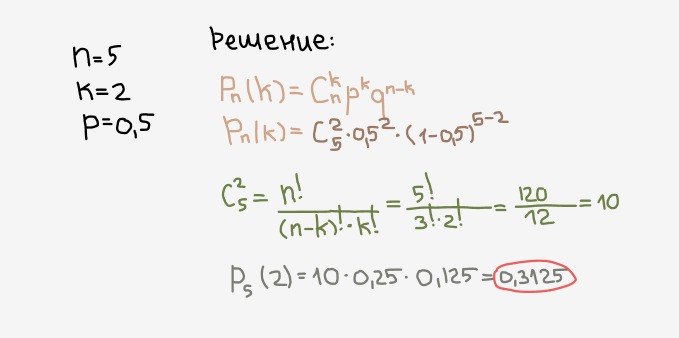 n=5
k=2
p=0,5
Решение:
Pₙ(k)=Cₙᵏpᵏqⁿ⁻ᵏ
Pₙ(k)=C₅²·0,5²·(1-0,5)⁵⁻²
C₅²=n!/((n-k)!·k!)=5!/(3!·2!)=120/12=10
P₅(2)=10·0,25·0,125=0,3125